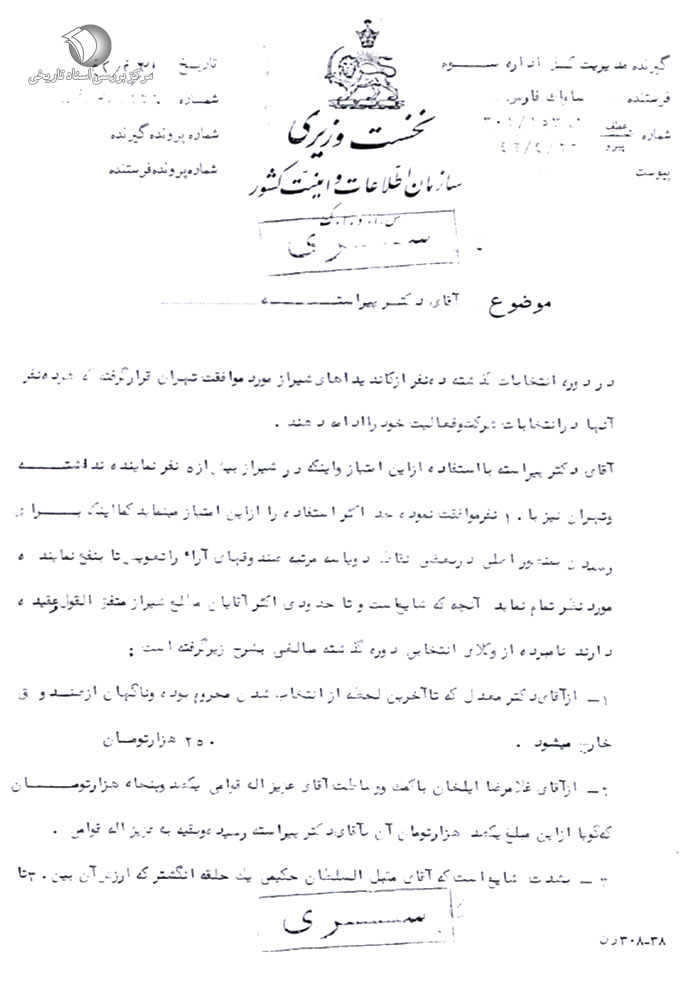 مرکز بررسی اسناد تاریخی
گیرنده مدیریت کل اداره سوم
فرستنده ساواک فارس
شماره
عطف
پیرو
پیوست
تاریخ
شماره
شماره پرونده گیرنده
شماره پرونده فرستنده
نخست وزیری
سازمان اطلاعات و امنیت کشور
س.ا.و.ا.ک
سری
موضوع آقای دکتر پیراسته
در دوره انتخابات گذشته ده نفر از کاندیداهای شیراز مورد موافقت تهران قرار گرفته که هر ده نفر
آنها در انتخابات شرکت و فعالیت خود را ادامه دهند .
آقای دکتر پیراسته با استفاده از این امتیاز و اینکه در شیراز بیش از ه نفر نماینده نداشته
و تهران نیز با ۱۰ نفر موافقت نموده حد اکثر استفاده را از این امتیاز مینماید کما اینکه برای
رسیدن بمنظور اصلی در بعضی نقاط دو یا سه مرتبه صندوقهای آراء را تعویض تا بنفع نماینده
مورد نظر تمام نماید آنچه که شایع است و تا حدودی اکثر آقایان مالع شیراز متفق القول و عقیده
دارند نامبرده از وکلای انتخابی دوره گذشته مبالغی بشرح زیر گرفته است :
۱- از آقای دکتر معدل که تا آخرین لحظه از انتخاب شدن محروم بوده و ناگهان از صندوق
خارج میشود . ۲۵۰ هزار تومان
۲- از آقای غلامرضا ایلخان با کمک و وساطت آقای عزیز اله قوامی یکصد و پنجاه هزار تومان
که گویا از این مبلغ یکصد هزار تومان آن بآقای دکتر پیراسته رسیده و بقیه به عزیز اله قوامی .
۳- بشدت شایع است که آقای مقبل السلطان حکیمی یک حلقه انگشتر که ارزش آن بین ۳۰ تا
سری
۳۰۸-۳۸ ن